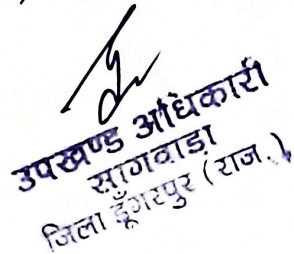 उपखण्ड अधिकारी
सागवाड़ा
जिला डूँगरपुर (राज.)